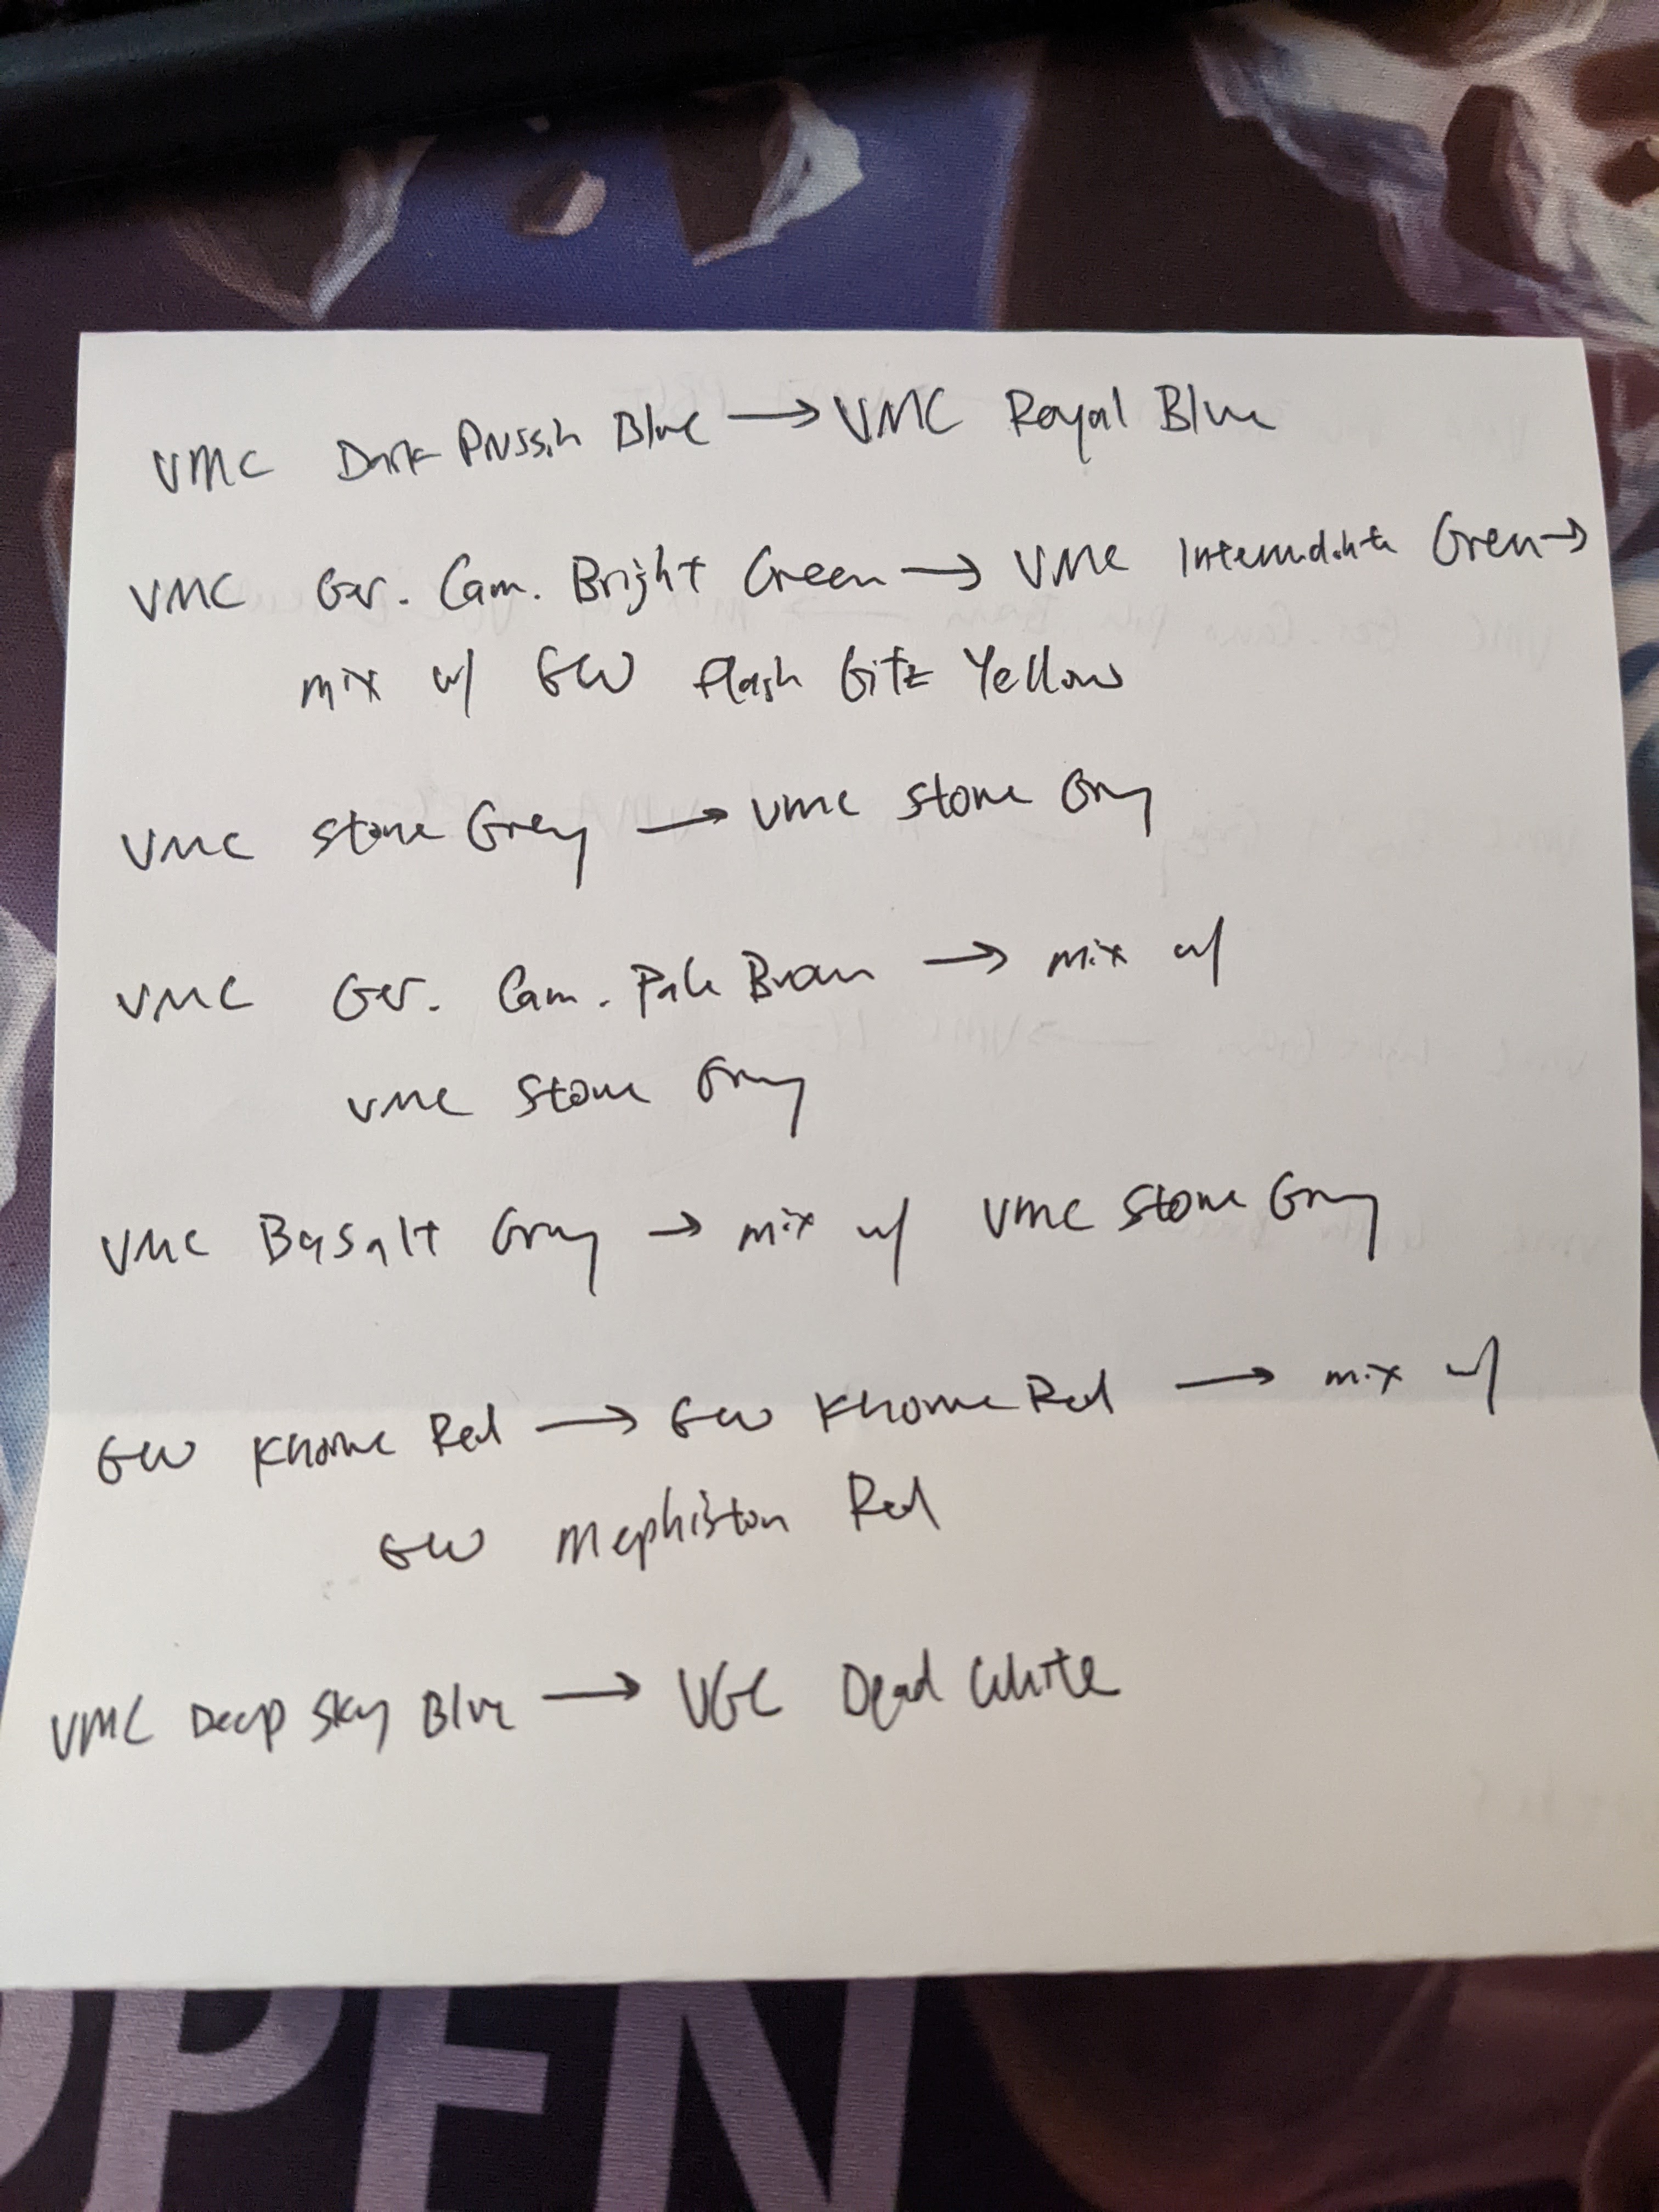 VMC Dark Prussin Blue → VMC Royal Blue
VMC Ger. Cam. Bright Green → VMC Intermediate Green →
mix w/ GW Flash Gitz Yellow
VMC Stone Grey → VMC Stone Gray
VMC Ger. Cam. Pale Brown → mix w/
VMC Stone Gray
VMC Basalt Gray → mix w/ VMC Stone Gray
GW Khorne Red → GW Khorne Red → mix w/
GW Mephiston Red
VMC Deep Sky Blue → VGC Dead White
OPEN